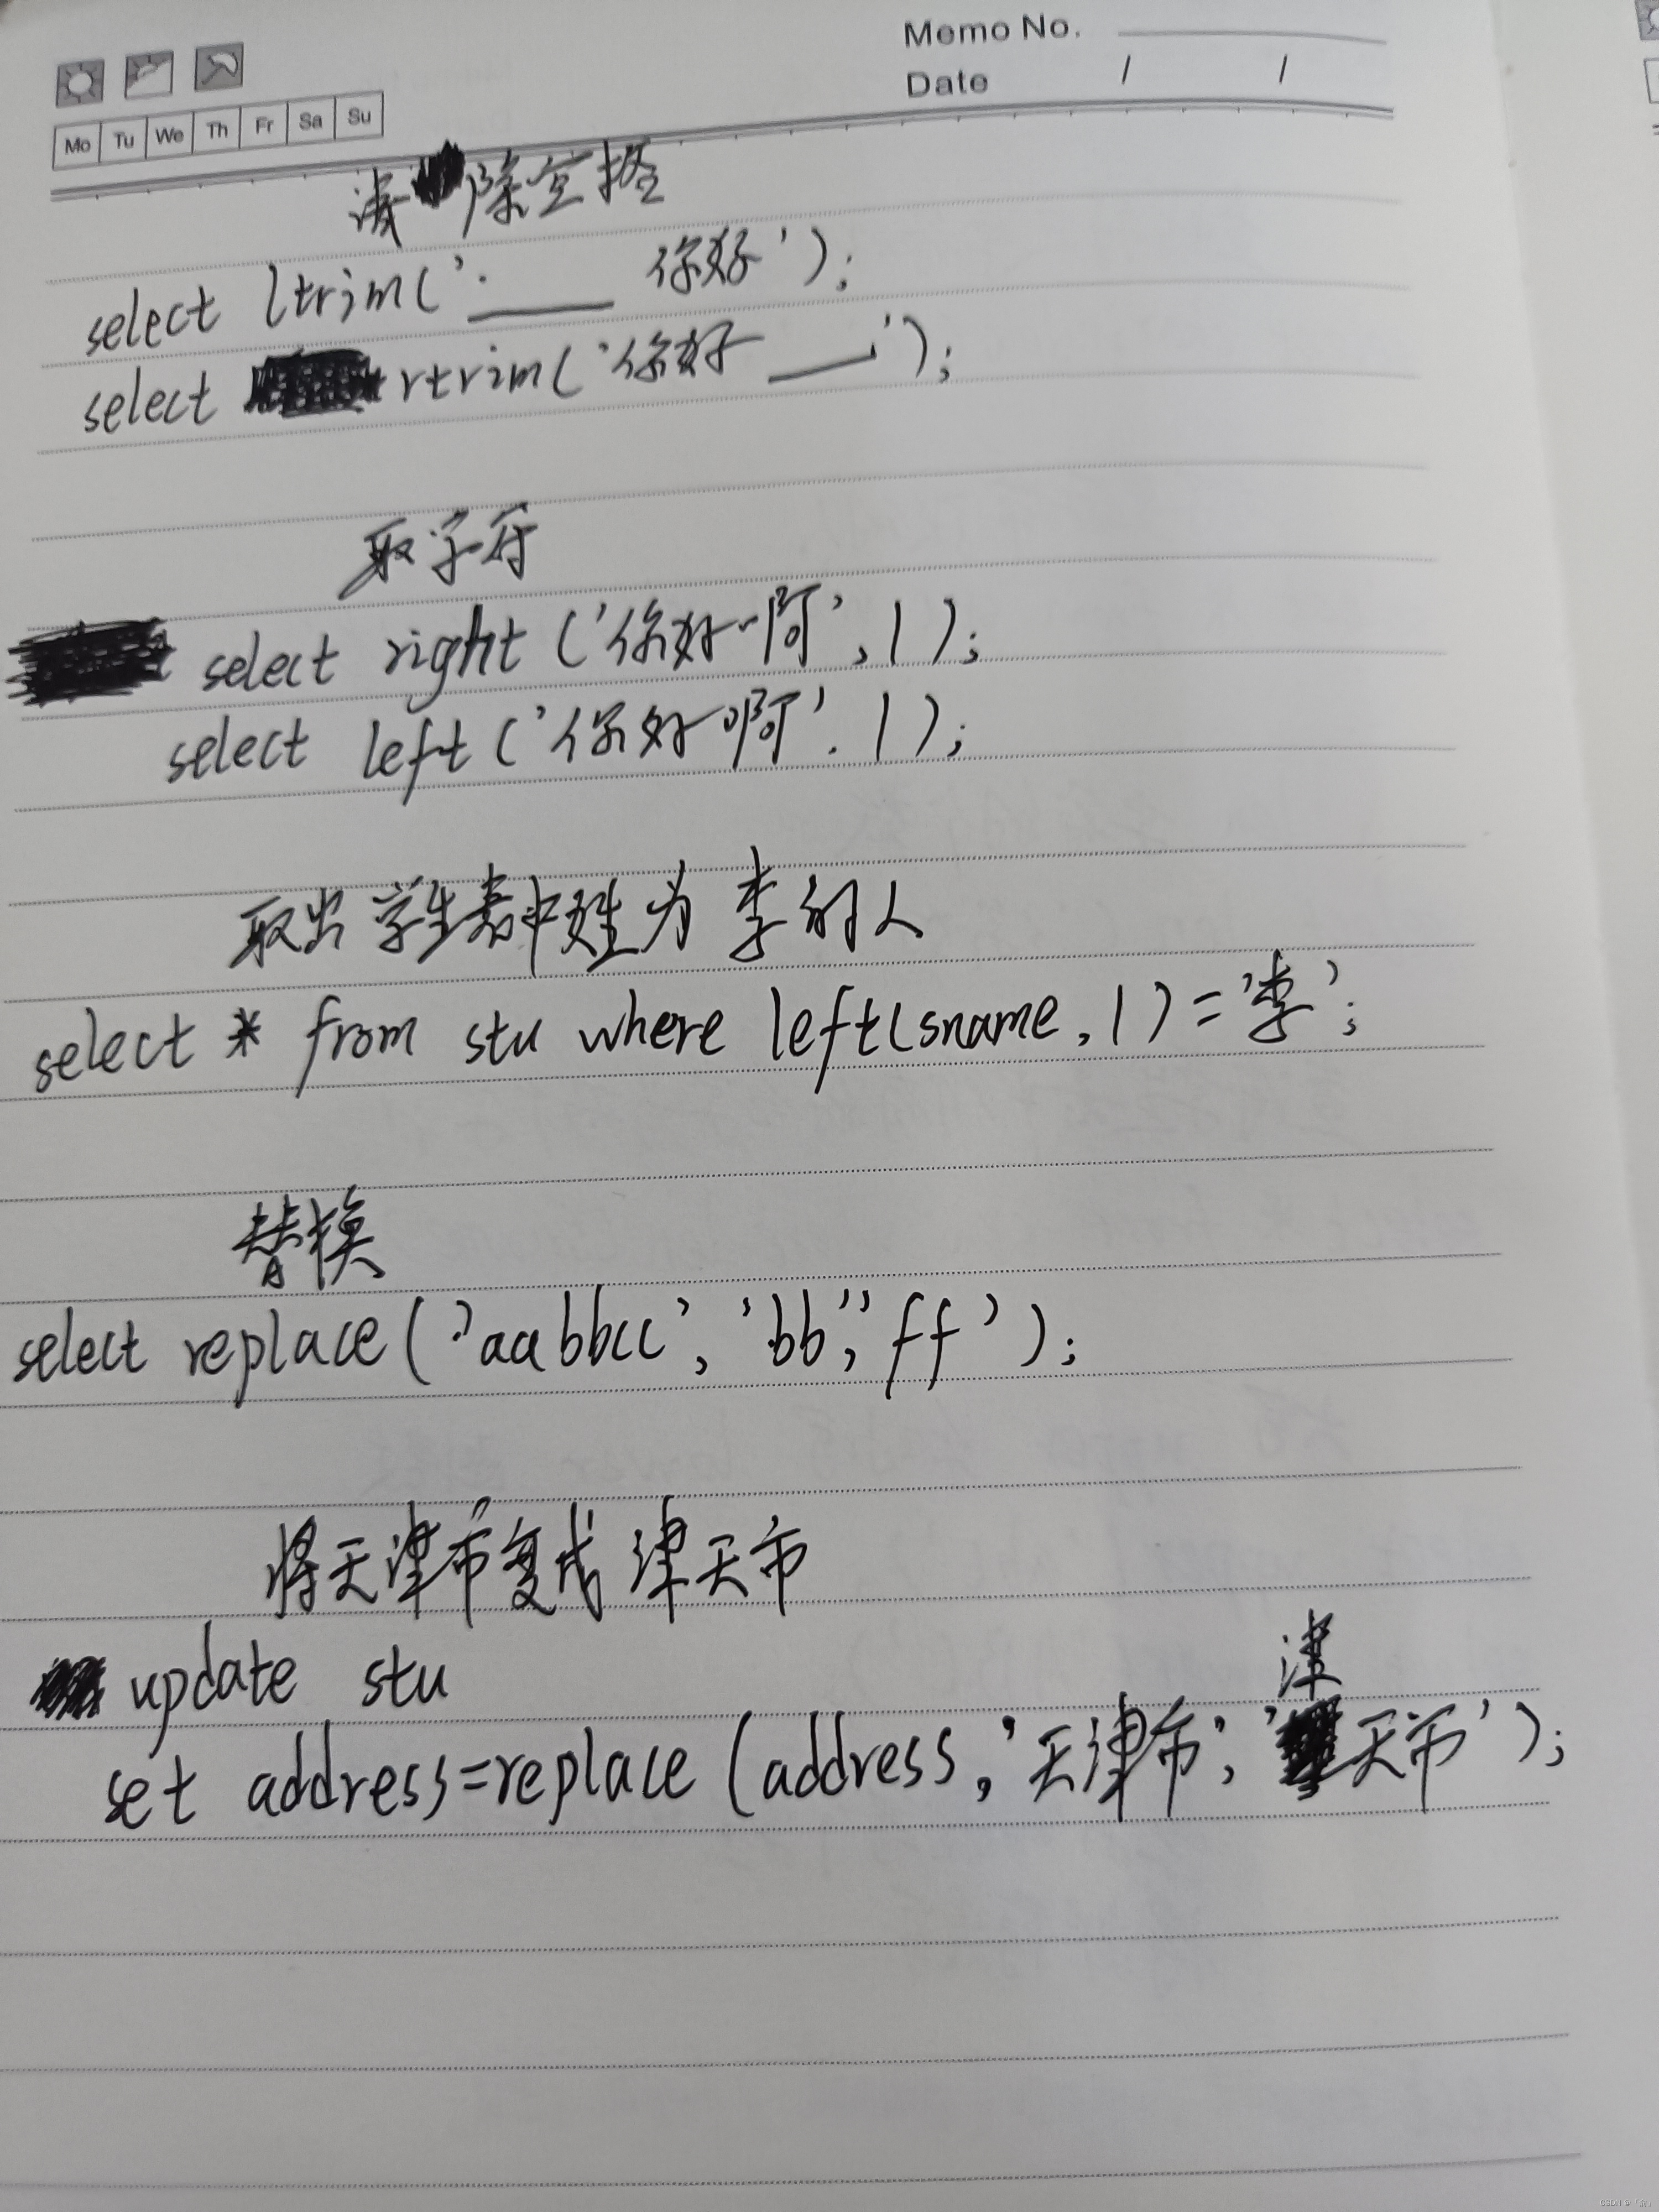 Memo No.
Date / /
Mo Tu We Th Fr Sa Su
清除空格
select ltrim('___ 你好');
select rtrim('你好___');
取字符
select right('你好啊',1);
select left('你好啊',1);
取出学生表中姓为李的人
select * from stu where left(sname,1)='李';
替换
select replace('aabbcc','bb','ff');
将天津市变成津天市
update stu
set address=replace(address,'天津市','津天市');